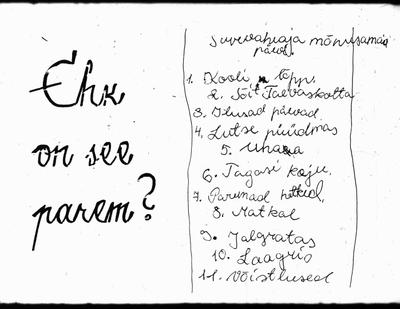 Ehk
on see
parem?
Suvevaheaja mõnusamaid
päevi.
1. Kooli lõpp.
2. Sõit Taevaskotta
3. Ilusad päevad.
4. Lutse püüdmas
5.
6. Tagasi koju.
7. Paremad hetked.
8. Matkal
9. Jalgratas
10. Laagris
11. Võistlused